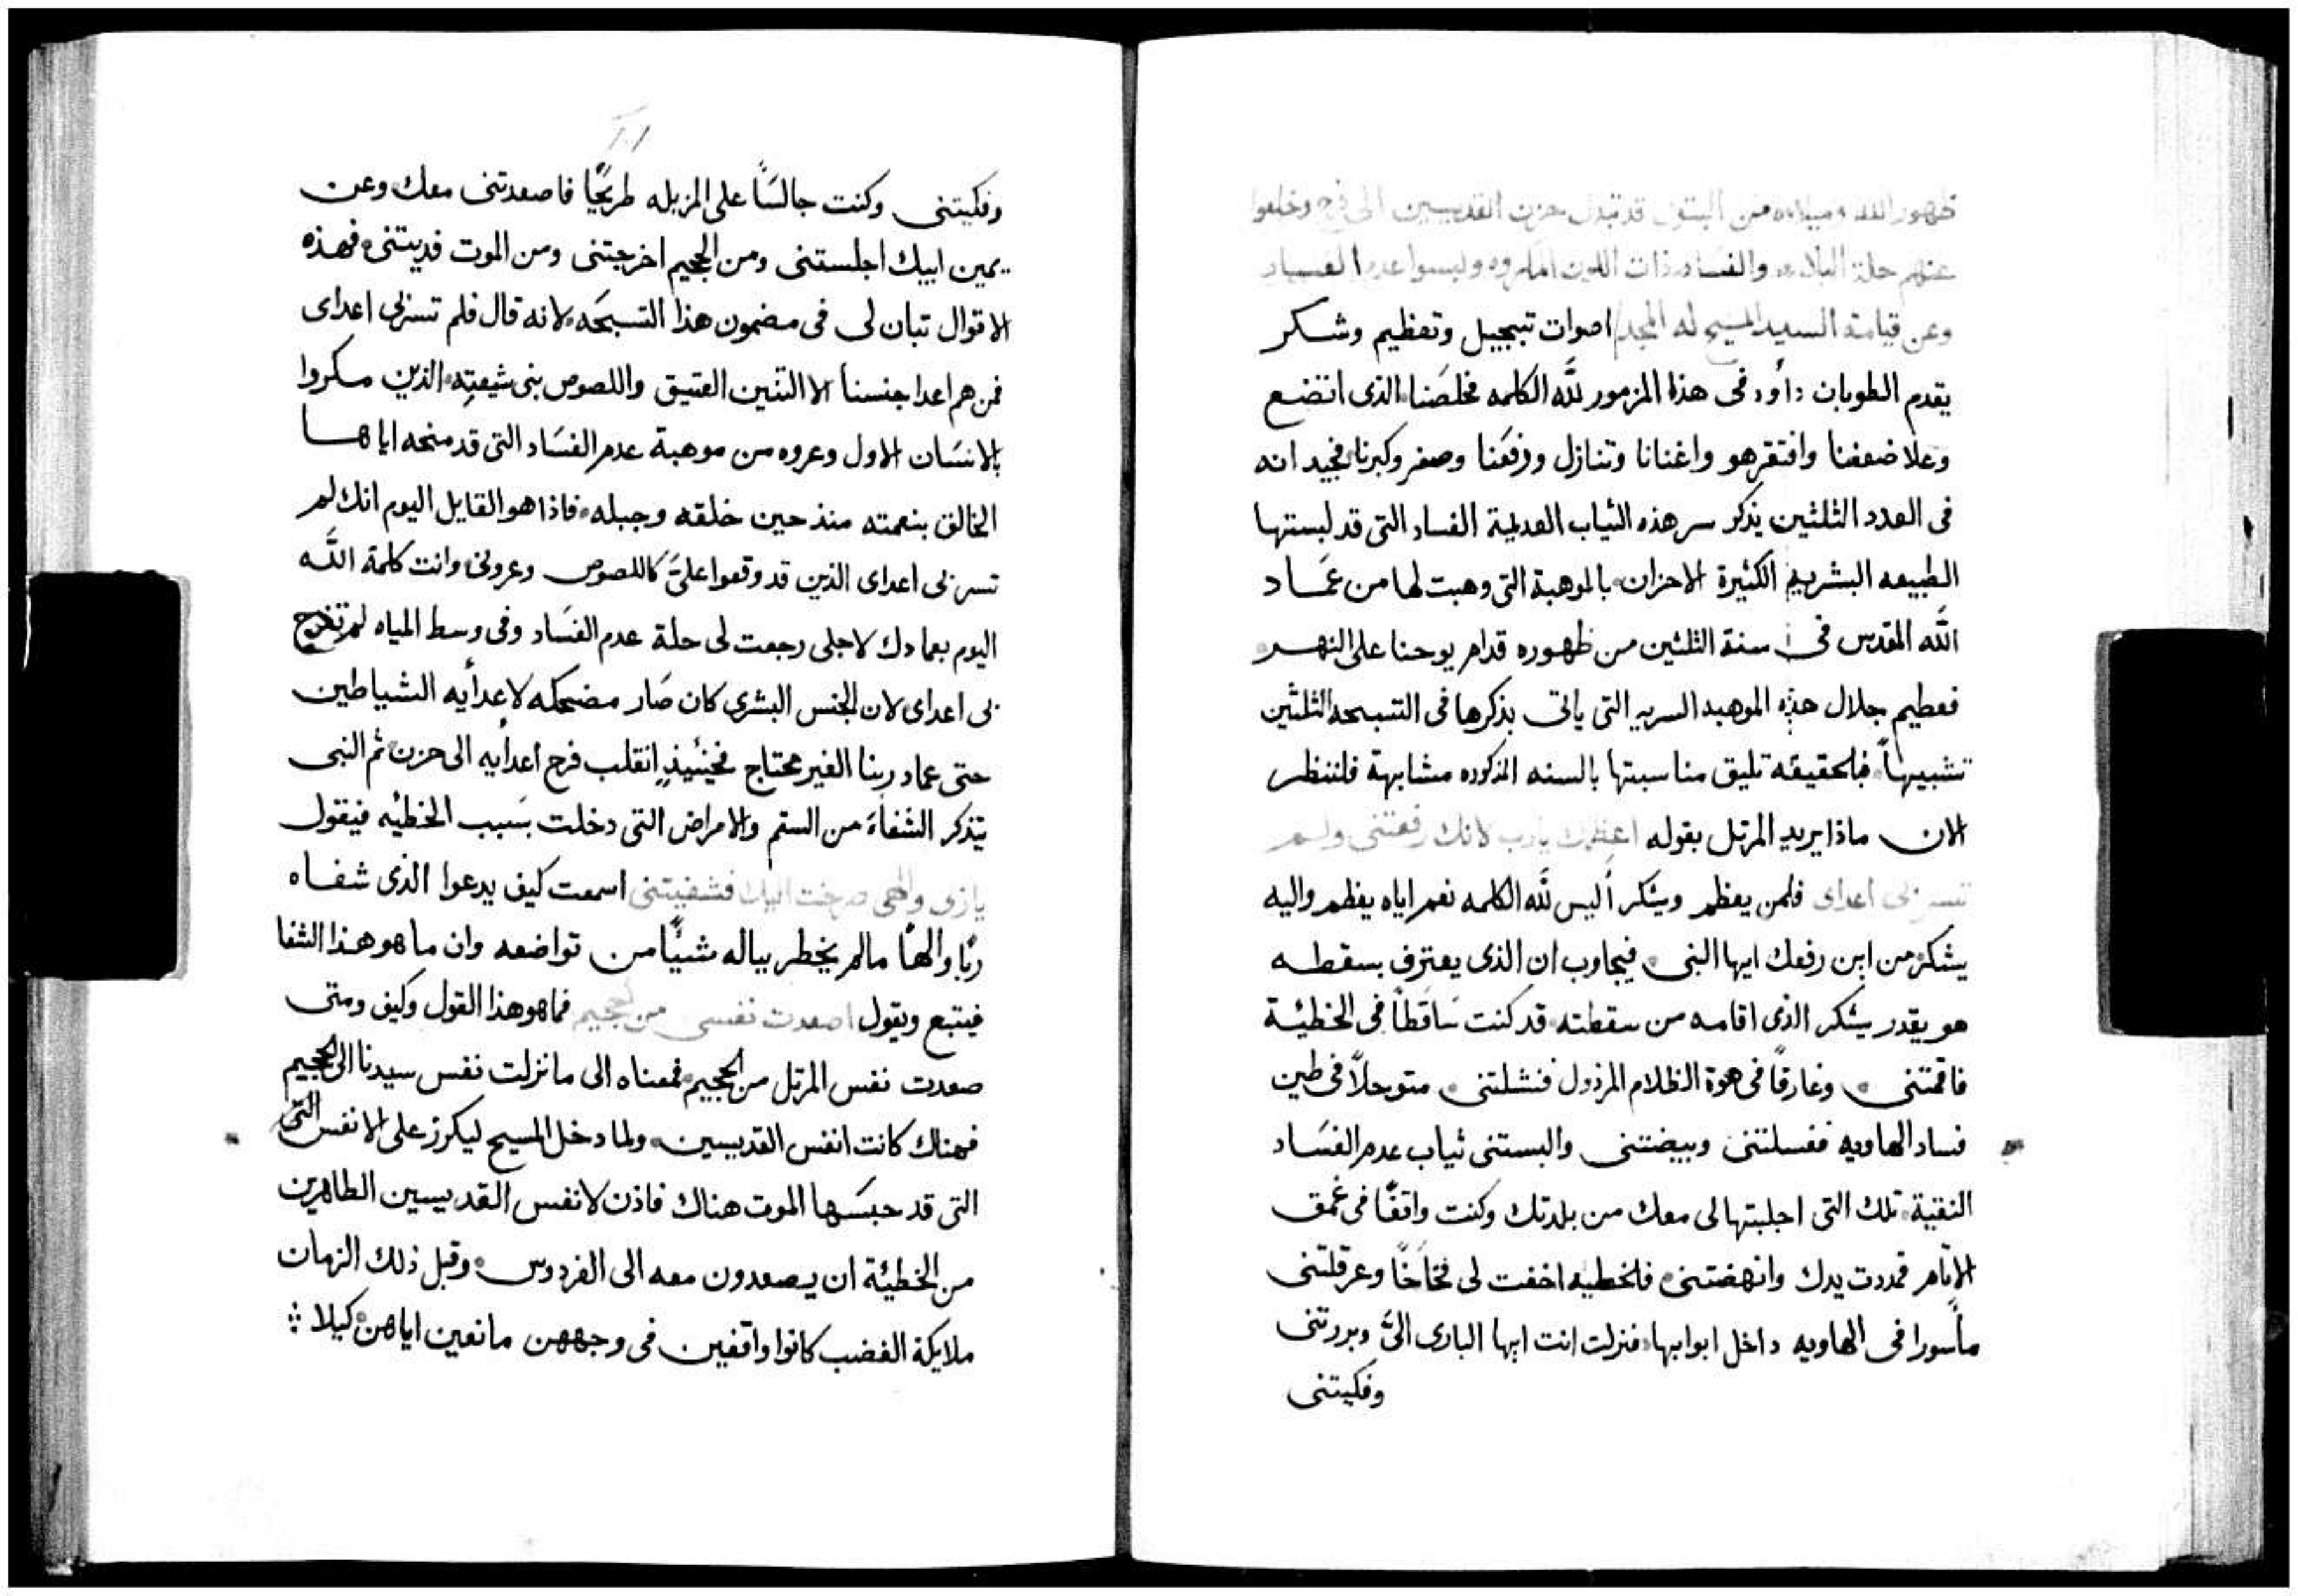 ظهور الله وميلاده من البتول قد تبدل حزن القديسين الى فرح وخلعوا
عنهم حلة البلاء والفساد ذات اللون ولبسوا عدم الفساد
وعن قيامة السيد المسيح له المجد اصوات تبجيل وتعظيم وشكر
يقدم الطوبان داود فى هذا المزمور لله الكلمه مخلصنا الذى اتضع
وعلا ضعفنا وافتقر هو واغنانا وتنازل ورفعنا وصغر وكبرنا فجيد انه
فى العدد الثلثين يذكر سر هذه الثياب العديمة الفساد التى قد لبستها
الطبيعه البشريه الكثيرة الاحزان بالموهبة التى وهبت لها من عماد
الله المقدس فى سنة الثلثين من ظهوره قدام يوحنا على النهر
فعظيم جلال هذه الموهبه السريه التى ياتى بذكرها فى التسبحه الثلثين
تشبيهاً فبالحقيقه تليق مناسبتها بالسنه المذكوره مشابهة فلننظر
الان ماذا يريد المرتل بقوله اعظمك يارب لانك رفعتنى ولم
تسر بى اعداى فلمن يعظم ويشكر أليس لله الكلمه نعم اياه يعظم واليه
يشكر من اين رفعك ايها النبى فيجاوب ان الذى يعترف بسقطه
هو يقدر يشكر الذى اقامه من سقطته قد كنت ساقطاً فى الخطيئة
فاقمتنى وغارقاً فى هوة الظلام المرذول فنشلتنى متوحلاً فى طين
فساد الهاويه فغسلتنى وبيضتنى والبستنى ثياب عدم الفساد
النقية تلك التى اجلبتها لى معك من بلدتك وكنت واقفًا فى غمق
الاثام فمددت يدك وانهضتنى فالخطيه اخفت لى فخاخًا وعرقلتنى
مأسورا فى الهاويه داخل ابوابها فنزلت انت ايها البارى الىَّ وبررتنى
وفكيتنى
وفكيتنى وكنت جالسًا على المزبله طريحًا فاصعدتنى معك وعن
يمين ابيك اجلستنى ومن الجحيم اخرجتنى ومن الموت فديتنى فهذه
الاقوال تبان لى فى مضمون هذا التسبحه لانه قال فلم تسر بى اعداى
فمن هم اعدا جنسنا الا التنين العتيق واللصوص بنى شيعته الذين مكروا
بالانسان الاول وعروه من موهبة عدم الفساد التى قد منحه اياها
الخالق بنعمته منذ حين خلقه وجبله فاذا هو القايل اليوم انك لم
تسر بى اعداى الذين قد وقعوا علىَّ كاللصوص وعرونى وانت كلمة الله
اليوم بعمادك لاجلى رجعت لى حلة عدم الفساد وفى وسط المياه لم تفرح
بى اعداى لان الجنس البشرى كان صار مضحكه لاعدأيه الشياطين
حتى عماد ربنا الغير محتاج فحينئيذٍ انقلب فرح اعدأيه الى حزن ثم النبى
يتذكر الشفاءَ من السقم والامراض التى دخلت بسبب الخطيه فيقول
ياربى والهى صرخت اليك فشفيتنى اسمعت كيف يدعوا الذى شفاه
ربًا والهًا مالم يخطر بباله شيئًا من تواضعه وان ما هو هذا الشفا
فيتبع ويقول اصعدت نفسى من الجحيم فما هو هذا القول وكيف ومتى
صعدت نفس المرتل من الجحيم فمعناه الى ما نزلت نفس سيدنا الى الجحيم
فهناك كانت انفس القديسين ولما دخل المسيح ليكرز على الانفس التى
التى قد حبسها الموت هناك فاذن لانفس القديسين الطاهرين
من الخطيئة ان يصعدون معه الى الفردوس وقبل ذلك الزمان
ملايكة الغضب كانوا واقفين فى وجههن مانعين اياهن كيلا